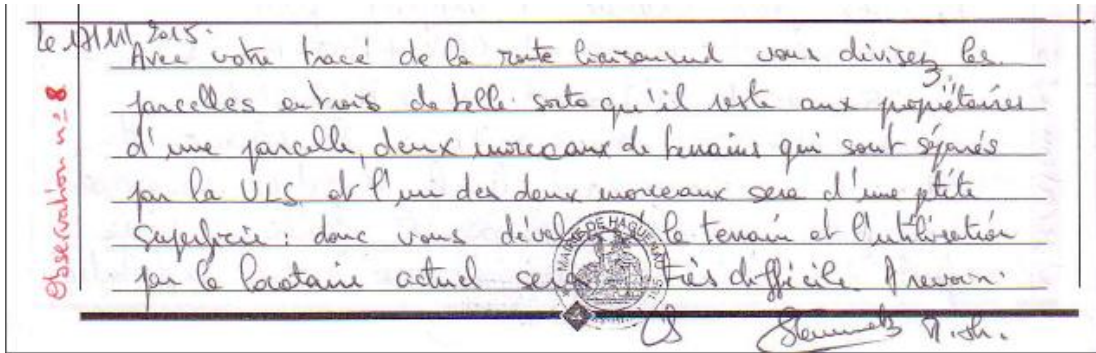 le 17/11/2015.
Avec votre tracé de la route liaison sud vous divisez les
parcelles en trois de telle sorte qu'il reste aux propiétaires
d'une parcelle, deux morceaux de terrains qui sont séparés
par la VLS et l'un des deux morceaux sera d'une ptite
superficie : donc vous le terrain et l'utilisation
par le locataire actuel sera très difficile. A revoir.
Observation n° 8
MAIRIE DE HAGUENAU
4